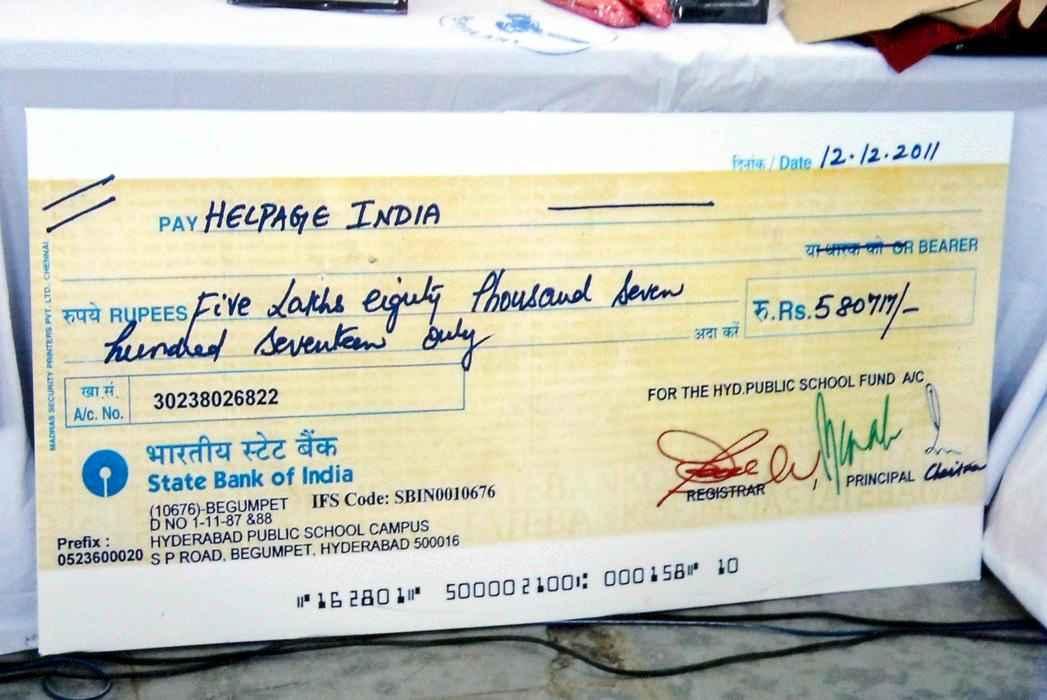 दिनांक / Date 12.12.2011
PAY HELPAGE INDIA
या धारक को OR BEARER
रुपये RUPEES Five Lakhs eighty thousand seven
hundred seventeen only
अदा करें
रु.Rs.580717/-
खा सं.
A/c. No. 30238026822
FOR THE HYD.PUBLIC SCHOOL FUND A/C
भारतीय स्टेट बैंक
State Bank of India
REGISTRAR
PRINCIPAL
(10676)-BEGUMPET IFS Code: SBIN0010676
D NO 1-11-87 &88
HYDERABAD PUBLIC SCHOOL CAMPUS
S P ROAD, BEGUMPET, HYDERABAD 500016
Prefix :
0523600020
⑈162801⑈ 500002100⑆ 000158⑈ 10
MADRAS SECURITY PRINTERS PVT. LTD. CHENNAI